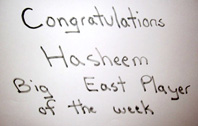 Congratulations
Hasheem
Big East Player
of the week